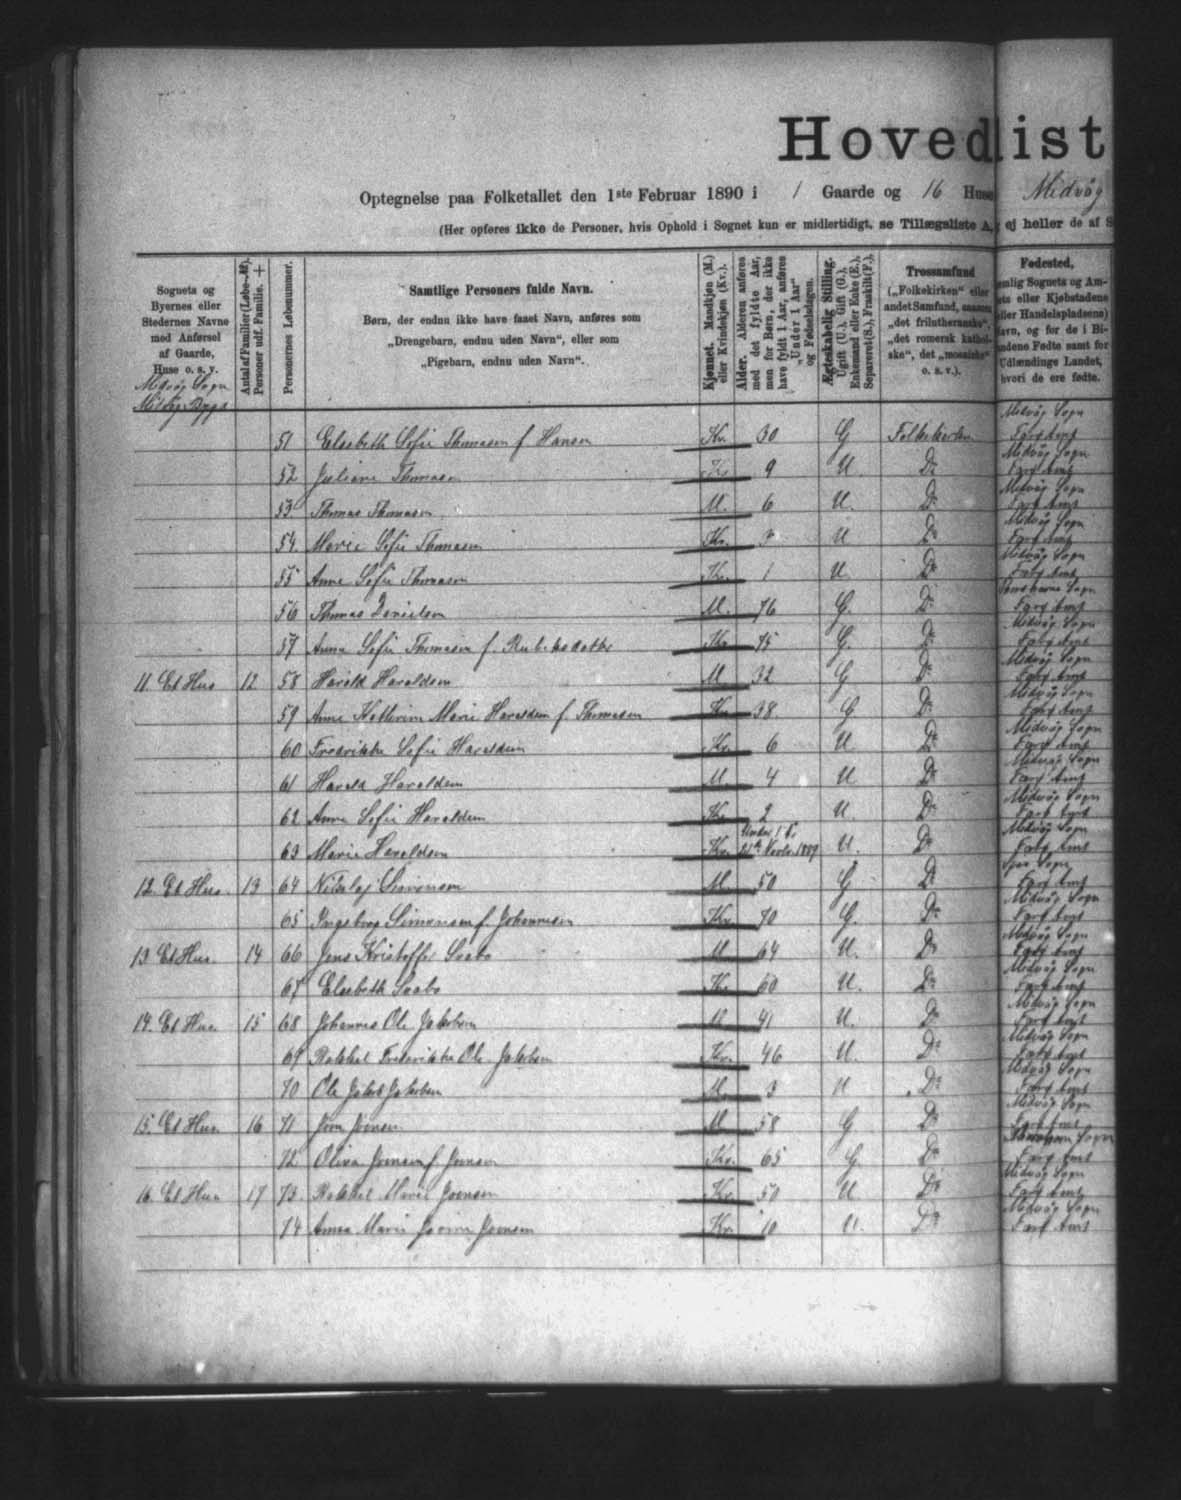 Hovedlist
Optegnelse paa Folketallet den 1ste Februar 1890 i 1 Gaarde og 16 Huse Midvåg
(Her opføres ikke de Personer, hvis Ophold i Sognet kun er midlertidigt, se Tillægsliste A, ej heller de af S
Sognets og Byernes eller Stedernes Navne med Anførsel af Gaarde, Huse o. s. v.
Antal af Familier (Løbe-№). Personer udf. Familie. +
Personernes Løbenummer.
Samtlige Personers fulde Navn.
Børn, der endnu ikke have faaet Navn, anføres som
„Drengebarn, endnu uden Navn", eller som
„Pigebarn, endnu uden Navn".
Kjønnet. Mandkjøn (M.) eller Kvindekjøn (Kv.).
Alder. Alderen anføres med det fyldte Aar, men for Børn, der ikke have fyldt 1 Aar, anføres „Under 1 Aar" og Fødselsdagen.
Ægteskabelig Stilling. Ugift (U.), Gift (G.), Enkemand eller Enke (E.), Separeret (S.), Fraskilt (F.).
Trossamfund („Folkekirken" eller andet Samfund, saasom „det frilutheranske", „det romersk katholske", det „mosaiske" o. s. v.).
Fødested,
Midvåg Sogn
Midvåg Bygd
51 Elsebeth Sofie Thomasen f. Hansen Kv. 30 G Folkekirken Midvåg Sogn Færø Amt
52 Juliane Thomasen Kv. 9 U Do Midvåg Sogn Færø Amt
53 Thomas Thomasen M. 6 U. Do Midvåg Sogn Færø Amt
54 Marie Sofie Thomasen Kv. 3 U Do Midvåg Sogn Færø Amt
55 Anne Sofie Thomasen Kv. 1 U. Do Midvåg Sogn Færø Amt
56 Thomas Danielsen M. 76 G. Do Sogn Færø Amt
57 Anna Sofie Thomasen f. Kv. 75 G. Do Midvåg Sogn Færø Amt
11. Et Hus 12 58 Harald Haraldsen M 32 G Do Midvåg Sogn Færø Amt
59 Anne Kathrine Marie Haraldsen f. Thomasen Kv. 38 G Do Midvåg Sogn Færø Amt
60 Fredrikke Sofie Haraldsen Kv. 6 U Do Midvåg Sogn Færø Amt
61 Harald Haraldsen M. 4 U Do Midvåg Sogn Færø Amt
62 Anne Sofie Haraldsen Kv. 2 U Do Midvåg Sogn Færø Amt
63 Marie Haraldsen Kv. Under 1 År 1889 U. Do Midvåg Sogn Færø Amt
12. Et Hus 13 64 Nikolaj Simonsen M. 50 G Do Sogn Færø Amt
65 Ingeborg Simonsen f. Johannesen Kv. 70 G. Do Midvåg Sogn Færø Amt
13 Et Hus. 14 66 Jens Kristoffer Svabo M 64 U. Do Midvåg Sogn Færø Amt
67 Elsebeth Svabo Kv. 60 U. Do Midvåg Sogn Færø Amt
14. Et Hus. 15 68 Johannes Ole Jakobsen M 41 U. Do Midvåg Sogn Færø Amt
69 Rakkel Frederikke Ole Jakobsen Kv. 46 U. Do Midvåg Sogn Færø Amt
70 Ole Jakob Jakobsen M. 3 U Do Midvåg Sogn Færø Amt
15. Et Hus. 16 71 Joen Joensen M 58 G Do Midvåg Sogn Færø Amt
72 Oliva Joensen f. Joensen Kv. 65 G Do Sogn Færø Amt
16. Et Hus 17 73 Rakkel Marie Joensen Kv. 50 U Do Midvåg Sogn Færø Amt
74 Anna Marie Joensen Kv. 10 U. Do Midvåg Sogn Færø Amt